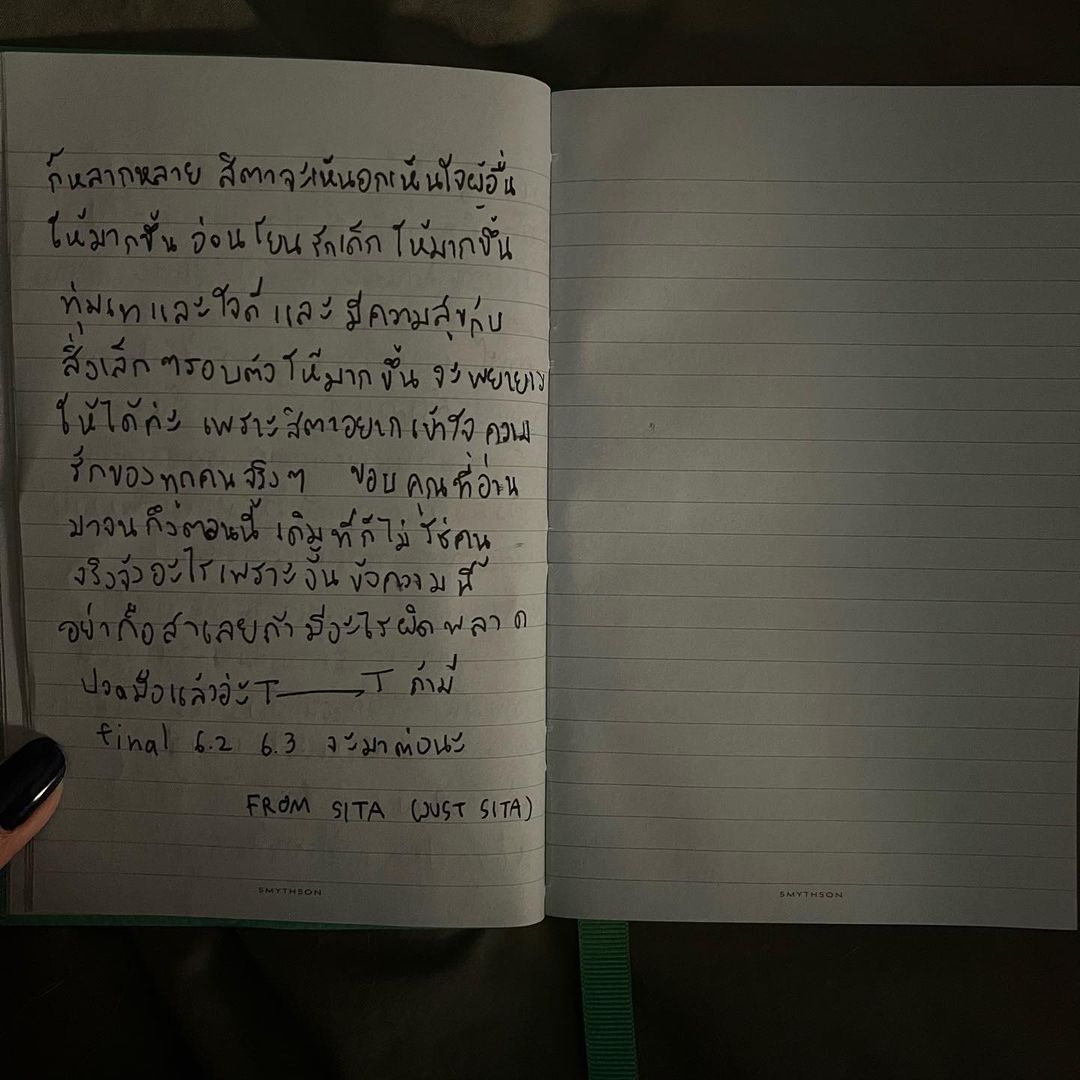 ก็หลากหลาย สิตาจะเห็นอกเห็นใจผู้อื่น
ให้มากขึ้น อ่อนโยน รักเด็ก ให้มากขึ้น
ทุ่มเทและใจดี และ มีความสุขกับ
สิ่งเล็กๆรอบตัวให้มากขึ้น จะพยายาม
ให้ได้ค่ะ เพราะสิตาอยากเข้าใจ ความ
รักของทุกคนจริงๆ ขอบคุณที่อ่าน
มาจนถึงตอนนี้ เดิมทีก็ไม่ใช่คน
จริงจังอะไรเพราะงั้น ข้อความนี้
อย่าถือสาเลยถ้ามีอะไรผิดพลาด
ปวดมือแล้วอ่ะ T——T ถ้ามี
final 6.2 6.3 จะมาต่อนะ
FROM SITA (JUST SITA)
SMYTHSON
SMYTHSON